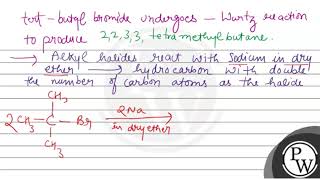 tert-butyl bromide undergoes — Wurtz reaction
to produce 2,2,3,3, tetramethyl butane.
→ Alkyl halides react with Sodium in dry
ether → hydrocarbon with double
the number of carbon atoms as the halide
CH3
2CH3-C-Br 2Na
in dry ether
CH3
PW